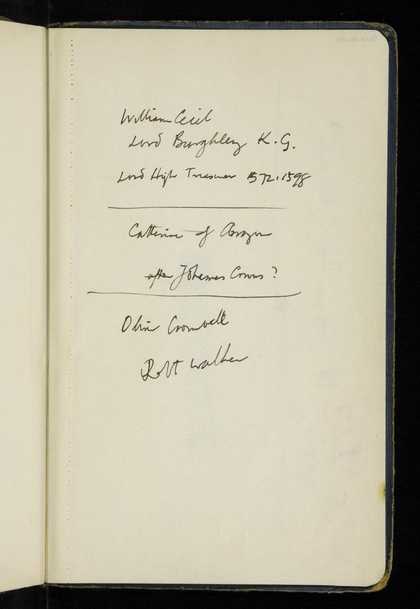 William Cecil
Lord Burghley K.G.
Lord High Treasurer 1572-1598
Catherine of Aragon
after Johannes Corvus?
Oliver Cromwell
Robt Walker